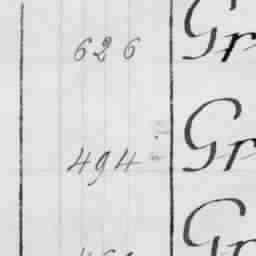 626 Gr
494 Gr
Gr